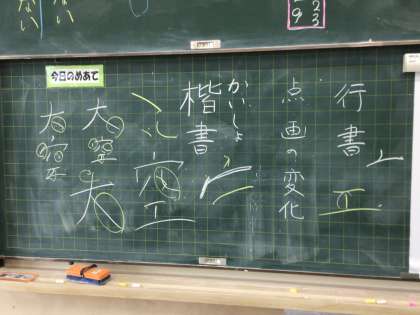 ない
ない
2
9 3
今日のめあて
行書
点画の変化
かいしょ
楷書
空
大空
大
大空